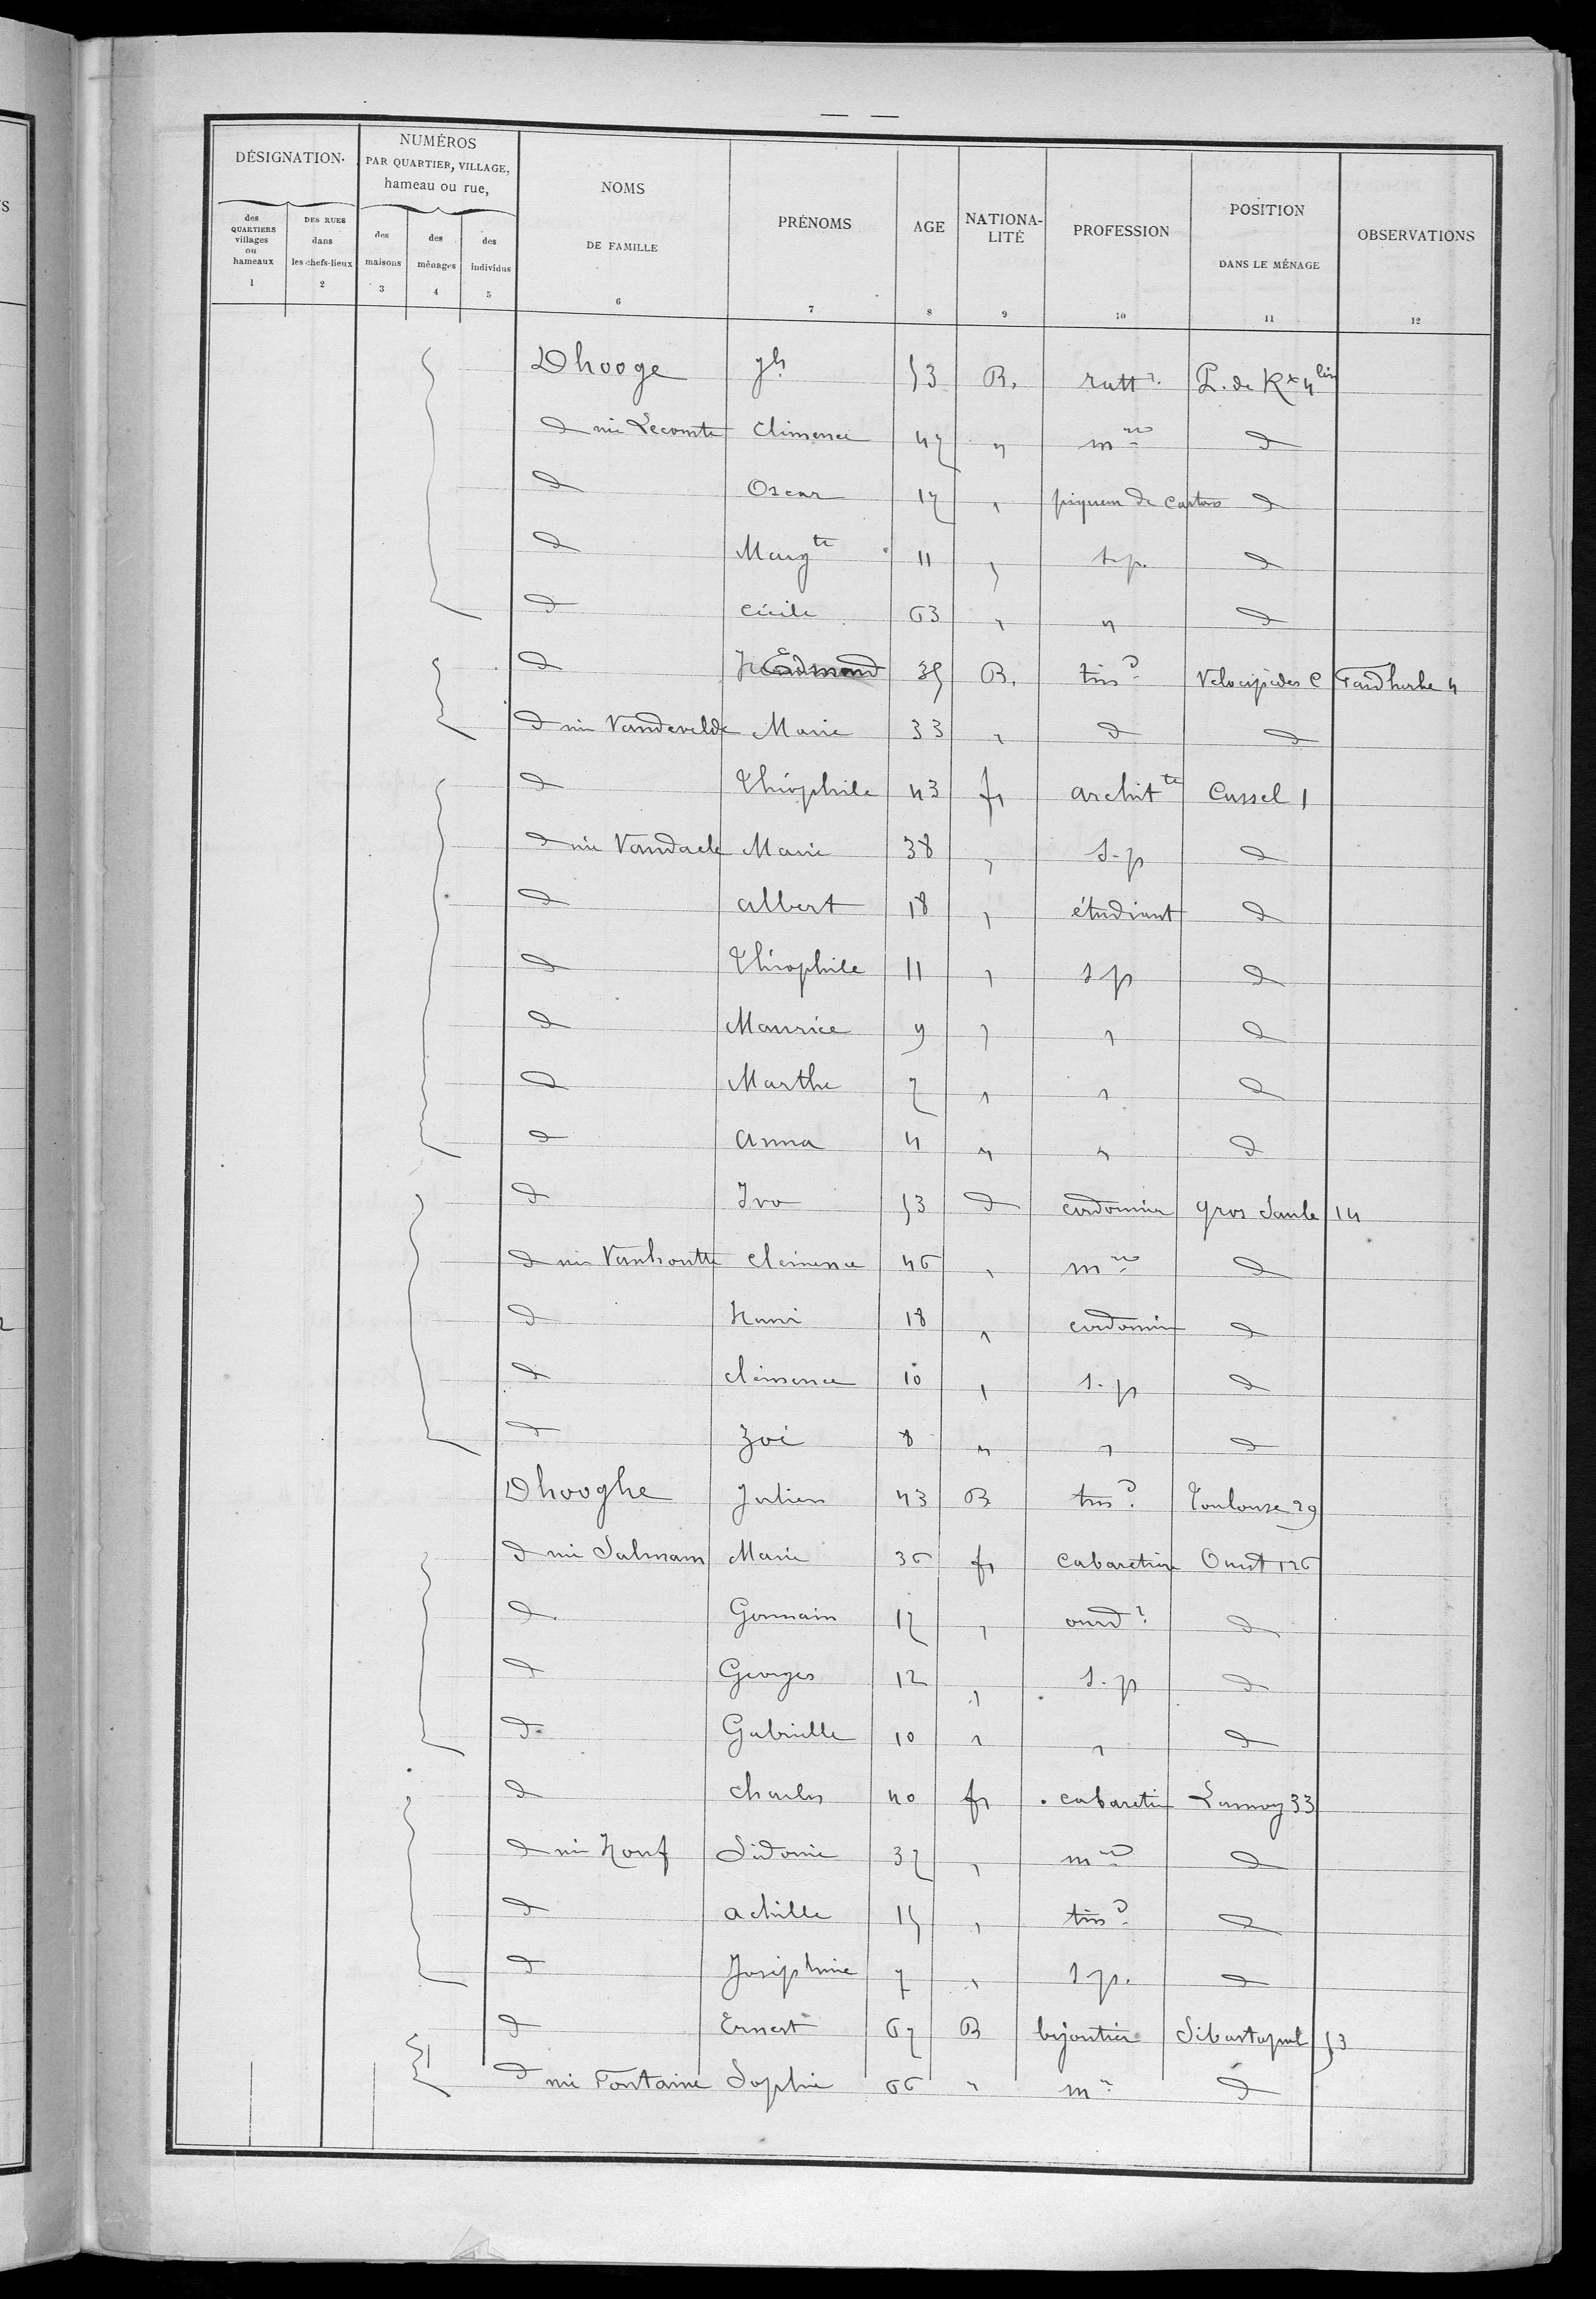 — —
DÉSIGNATION
NUMÉROS PAR QUARTIER, VILLAGE, hameau ou rue,
des QUARTIERS villages ou hameaux 1
DES RUES dans les chefs-lieux 2
des maisons 3
des ménages 4
des individus 5
NOMS DE FAMILLE 6
PRÉNOMS 7
AGE 8
NATIONA-LITÉ 9
PROFESSION 10
POSITION DANS LE MÉNAGE 11
OBSERVATIONS 12
Dhooge Jh 53 B. ratt r. P. de Rx 4
d née Lecomte Clémence 47 " m re d
d Oscar 17 " piqueur de cartons d
d Margte 11 " s.p. d
d Cécile 63 " " d
d Edmond 35 B. tiss d Vélocipèdes C Faidherbe 4
d née Vandevelde Marie 33 " d d
d Théophile 43 fr archit te Cassel 1
d née Vandaele Marie 38 " s.p d
d Albert 18 " étudiant d
d Théophile 11 " s p d
d Maurice 9 " " d
d Marthe 7 " " d
d Anna 4 " " d
d Ivo 53 d cordonnier gros Saule 14
d née Vanhoutte Clémence 46 " m re d
d Henri 18 " cordonnier d
d Clémence 10 " s.p d
d Zoé 8 " " d
Dhooghe Julien 43 B tiss d Toulouse 29
d née Salmam Marie 36 fr Cabaretière Ouest 126
d Germain 17 " ourd r d
d Georges 12 " s.p d
d Gabrielle 10 " " d
d Charles 40 fr cabaretier Lannoy 33
d née Houf Sidonie 37 " m re d
d Achille 15 " tiss d d
d Joséphine 7 " s p. d
d Ernest 67 B bijoutier Sébastopol 53
d née Fontaine Sophie 66 " m re d